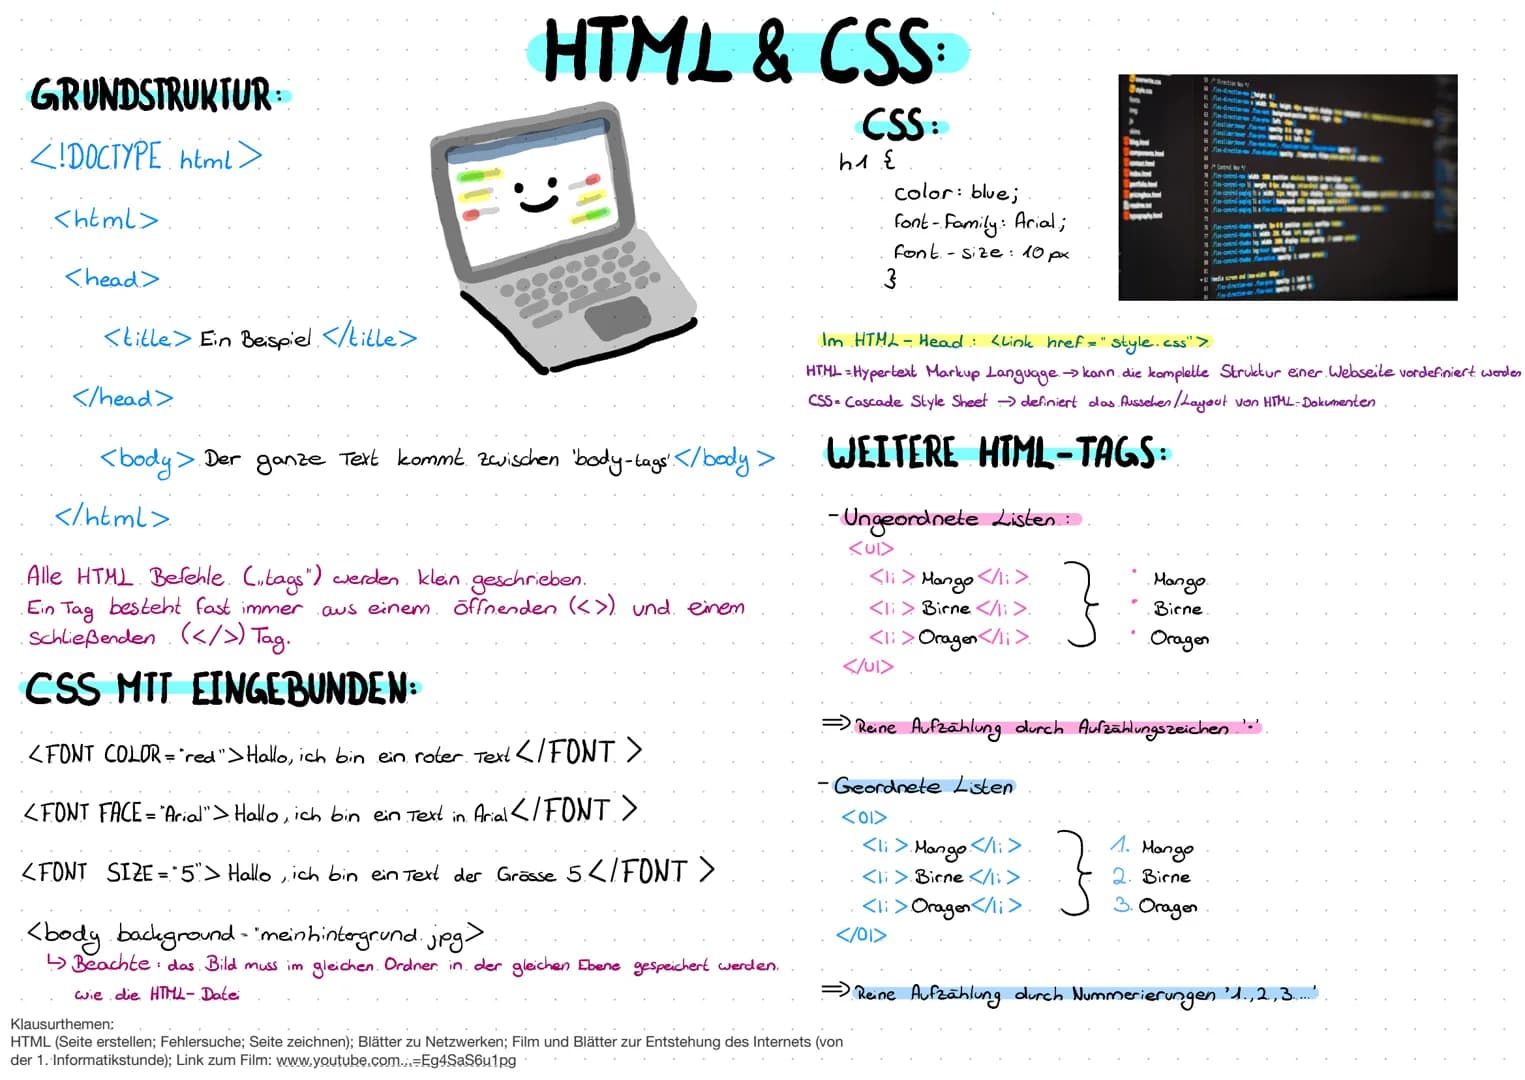 HTML & CSS:
GRUNDSTRUKTUR:
<!DOCTYPE html>
<html>
<head>
<title> Ein Beispiel </title>
</head>
<body> Der ganze Text kommt zwischen 'body-tags' </body>
</html>
Alle HTML Befehle („tags") werden klein geschrieben.
Ein Tag besteht fast immer aus einem öffnenden (<>) und einem
schließenden (</>) Tag.
CSS MIT EINGEBUNDEN:
<FONT COLOR="red"> Hallo, ich bin ein roter Text </FONT>
<FONT FACE="Arial"> Hallo, ich bin ein Text in Arial </FONT>
<FONT SIZE="5"> Hallo, ich bin ein Text der Grösse 5 </FONT>
<body background="meinhintergrund.jpg>
↳ Beachte: das Bild muss im gleichen Ordner in der gleichen Ebene gespeichert werden.
wie die HTML-Datei
Klausurthemen:
HTML (Seite erstellen; Fehlersuche; Seite zeichnen); Blätter zu Netzwerken; Film und Blätter zur Entstehung des Internets (von
der 1. Informatikstunde); Link zum Film: www.youtube.com...=Eg4SaS6u1pg
CSS:
h1 {
color: blue;
font-Family: Arial;
font-size: 10 px
}
Im HTML-Head: <Link href="style.css">
HTML=Hypertext Markup Language → kann die komplette Struktur einer Webseite vordefiniert werden
CSS= Cascade Style Sheet → definiert das Aussehen/Layout von HTML-Dokumenten
WEITERE HTML-TAGS:
- Ungeordnete Listen:
<ul>
<li> Mango </li> • Mango
<li> Birne </li> • Birne
<li> Oragen </li> • Oragen
</ul>
⇒ Reine Aufzählung durch Aufzählungszeichen '•'
- Geordnete Listen
<Ol>
<li> Mango </li> 1. Mango
<li> Birne </li> 2. Birne
<li> Oragen </li> 3. Oragen
</Ol>
⇒ Reine Aufzählung durch Nummerierungen '1.,2,3....'